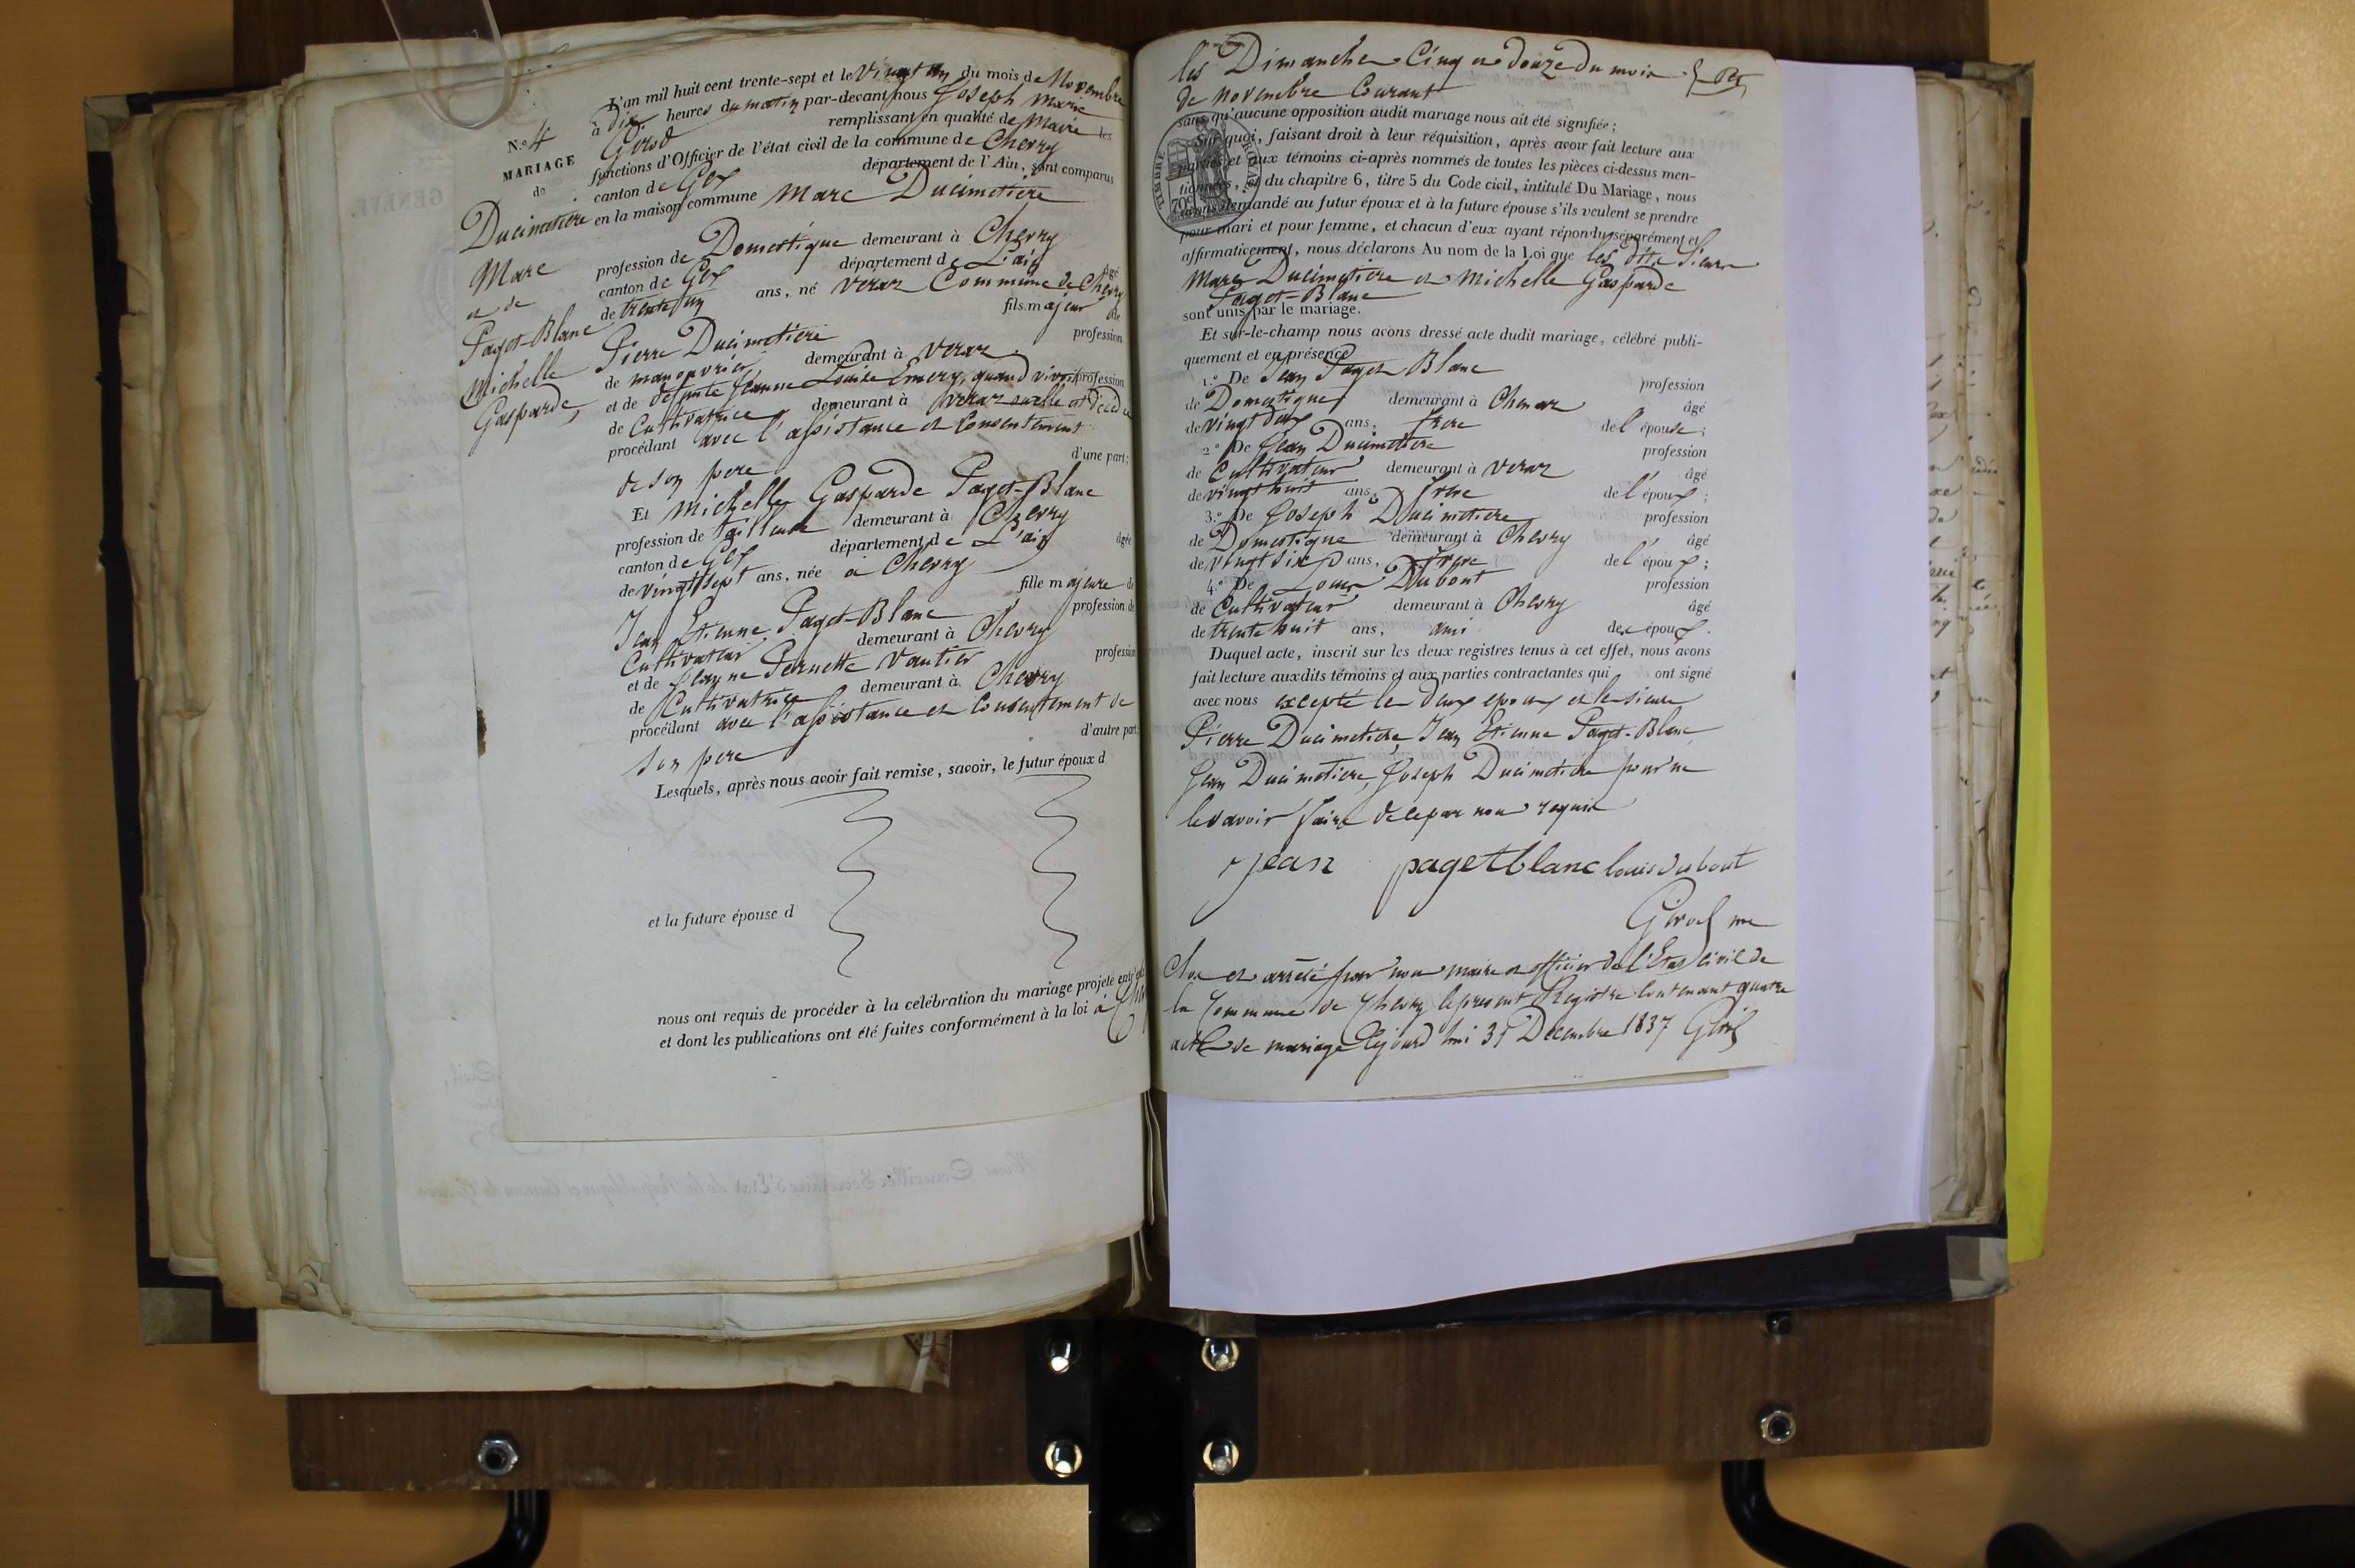 N.º 4
MARIAGE
de
Ducimetière
Marc
et de
Paget-Blanc
Michelle
Gasparde,
L'an mil huit cent trente-sept et le Vingt un du mois de Novembre
à Dix heures du matin par-devant nous Joseph Marie
Girod remplissant en qualité de Maire les
fonctions d'Officier de l'état civil de la commune de Chevry
canton de Gex département de l'Ain, sont comparus
en la maison commune Marc Ducimetière
profession de Domestique demeurant à Chevry
canton de Gex département de L'ain âgé
de trente un ans, né Veraz Commune de Chevry
fils majeur de
Pierre Ducimetière profession
de manouvrier demeurant à Veraz
et de defunte Jeanne Louise Emery, quand vivoit profession
de Cultivatrice demeurant à Veraz ou elle est décédée
procédant avec l'assistance et Consentement
de son pere d'une part;
Et Michelle Gasparde Paget-Blanc
profession de Tailleuse demeurant à Chevry
canton de Gex département de L'ain âgée
de vingt sept ans, née à Chevry
fille majeure de
Jean Etienne Paget-Blanc profession de
Cultivateur demeurant à Chevry
et de Jeanne Pernette Vautier profession
de Cultivatrice demeurant à Chevry
procédant avec l'assistance et Consentement de
son pere d'autre part.
Lesquels, après nous avoir fait remise, savoir, le futur époux d
et la future épouse d
nous ont requis de procéder à la célébration du mariage projeté entr'eux
et dont les publications ont été faites conformément à la loi à
les Dimanche Cinq et douze du mois
de novembre Courant
sans qu'aucune opposition audit mariage nous ait été signifiée;
Sur quoi, faisant droit à leur réquisition, après avoir fait lecture aux
parties et aux témoins ci-après nommés de toutes les pièces ci-dessus men-
tionnées, et du chapitre 6, titre 5 du Code civil, intitulé Du Mariage, nous
avons demandé au futur époux et à la future épouse s'ils veulent se prendre
pour mari et pour femme, et chacun d'eux ayant répondu séparément et
affirmativement, nous déclarons Au nom de la Loi que les dits Sieurs
Marc Ducimetière et Michelle Gasparde
Paget-Blanc
sont unis par le mariage.
Et sur-le-champ nous avons dressé acte dudit mariage, célébré publi-
quement et en présence
1.º De Jean Paget Blanc profession
de Domestique demeurant à Chenaz âgé
de vingt deux ans, frere de l'épouse;
2.º De Jean Ducimetière profession
de Cultivateur demeurant à Veraz âgé
de vingt huit ans, frere de l'époux;
3.º De Joseph Ducimetière profession
de Domestique demeurant à Chevry âgé
de vingt six ans, frere de l'époux;
4.º De Louis Dubout profession
de Cultivateur demeurant à Chevry âgé
de trente huit ans, ami des époux.
Duquel acte, inscrit sur les deux registres tenus à cet effet, nous avons
fait lecture auxdits témoins et aux parties contractantes qui ont signé
avec nous excepté les deux epoux et les sieurs
Pierre Ducimetière, Jean Etienne Paget-Blanc,
Jean Ducimetière, Joseph Ducimetière pour ne
le savoir faire de ce par nous requis
jean pagetblanc louis dubout
Girod me
Clos et arrêté par nous maire et officier de l'Etat civil de
la Commune de Chevry le present Registre contenant quatre
actes de mariage Cejourd'hui 31 Decembre 1837 Girod
TIMBRE ROYAL
70c
GENÈVE.